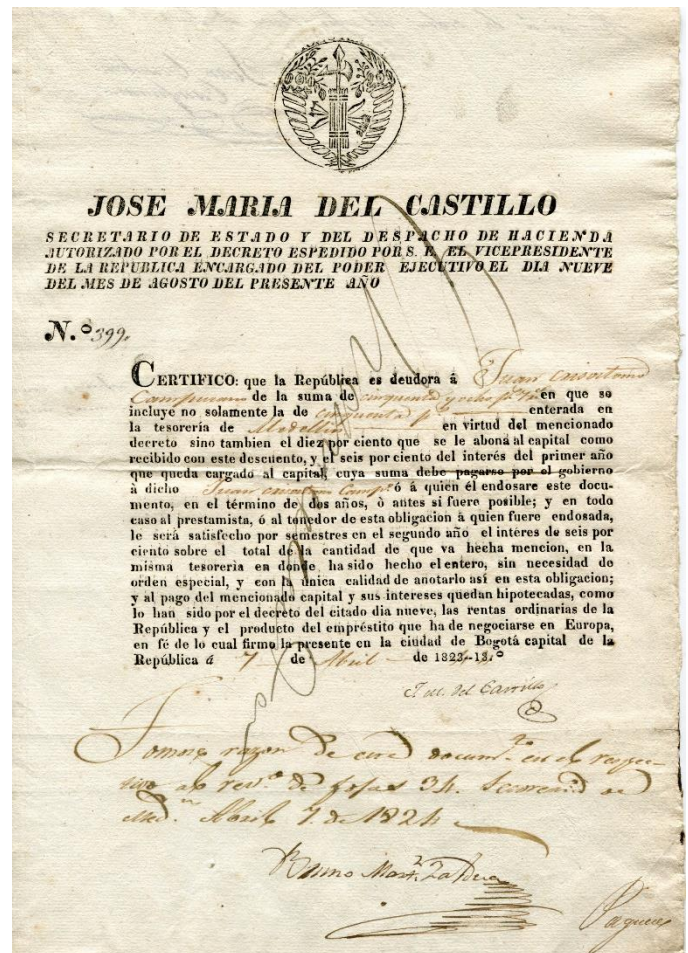 JOSE MARIA DEL CASTILLO
SECRETARIO DE ESTADO Y DEL DESPACHO DE HACIENDA
AUTORIZADO POR EL DECRETO ESPEDIDO POR S. E. EL VICEPRESIDENTE
DE LA REPUBLICA ENCARGADO DEL PODER EJECUTIVO EL DIA NUEVE
DEL MES DE AGOSTO DEL PRESENTE AÑO
N.º 399.
CERTIFICO: que la República es deudora á Juan
de la suma de cinquenta y ocho p.s en que se
incluye no solamente la de cinquenta p.s enterada en
la tesorería de Medellin en virtud del mencionado
decreto sino tambien el diez por ciento que se le abona al capital como
recibido con este descuento, y el seis por ciento del interés del primer año
que queda cargado al capital, cuya suma debe pagarse por el gobierno
à dicho Juan ó à quien él endosare este docu-
mento, en el término de dos años, ò antes si fuere posible; y en todo
caso al prestamista, ó al tenedor de esta obligacion à quien fuere endosada,
le será satisfecho por semestres en el segundo año el intéres de seis por
ciento sobre el total de la cantidad de que va hecha mencion, en la
misma tesoreria en donde ha sido hecho el entero, sin necesidad de
orden especial, y con la única calidad de anotarlo así en esta obligacion;
y al pago del mencionado capital y sus intereses quedan hipotecadas, como
lo han sido por el decreto del citado dia nueve, las rentas ordinarias de la
República y el producto del empréstito que ha de negociarse en Europa,
en fé de lo cual firmo la presente en la ciudad de Bogotá capital de la
República á 7 de Abril de 1823--13.º
J. M. del Castillo
Tomose razon de este docum.to en el respec-
tivo de fojas 34.
Med.n Abril 7. de 1824
Bruno